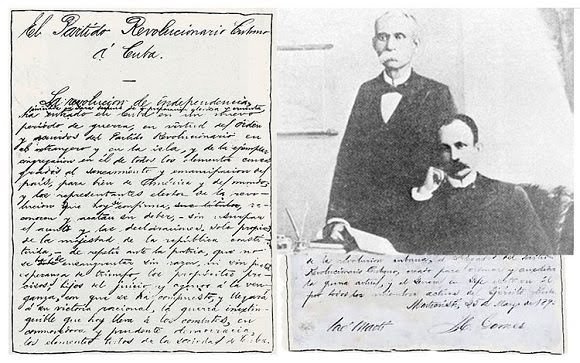 El Partido Revolucionario Cubano
á Cuba.
La revolución de independencia,
iniciada en Yara después de preparación gloriosa y cruenta,
ha entrado en Cuba en un nuevo
período de guerra, en virtud del orden
y acuerdos del Partido Revolucionario en
el extranjero y en la isla, y de la ejemplar
congregación en él de todos los elementos consa
grados al saneamiento y emancipación del
país, para bien de América y del mundo;
y los representantes electos de la revo-
lución que hoy se confirma, reco-
nocen y acatan su deber, - sin usurpar
el acento y las declaraciones solo propias
de la majestad de la república consti-
tuida, - de repetir ante la patria, que no
se ha de ensangrentar sin razón, ni sin justa
esperanza de triunfo, los propósitos pre-
cisos, hijos del juicio y agenos á la ven-
ganza, con que se ha compuesto, y llegará
á su victoria racional, la guerra inextin-
guible que hoy lleva á los combates, en
conmovedora y prudente democracia,
los elementos todos de la sociedad de Cuba.
de la
Revolucionario Cubano, creado para
la guerra actual, y el
por todos
Montecristi, 25 de Marzo de 189
José Martí M. Gómez